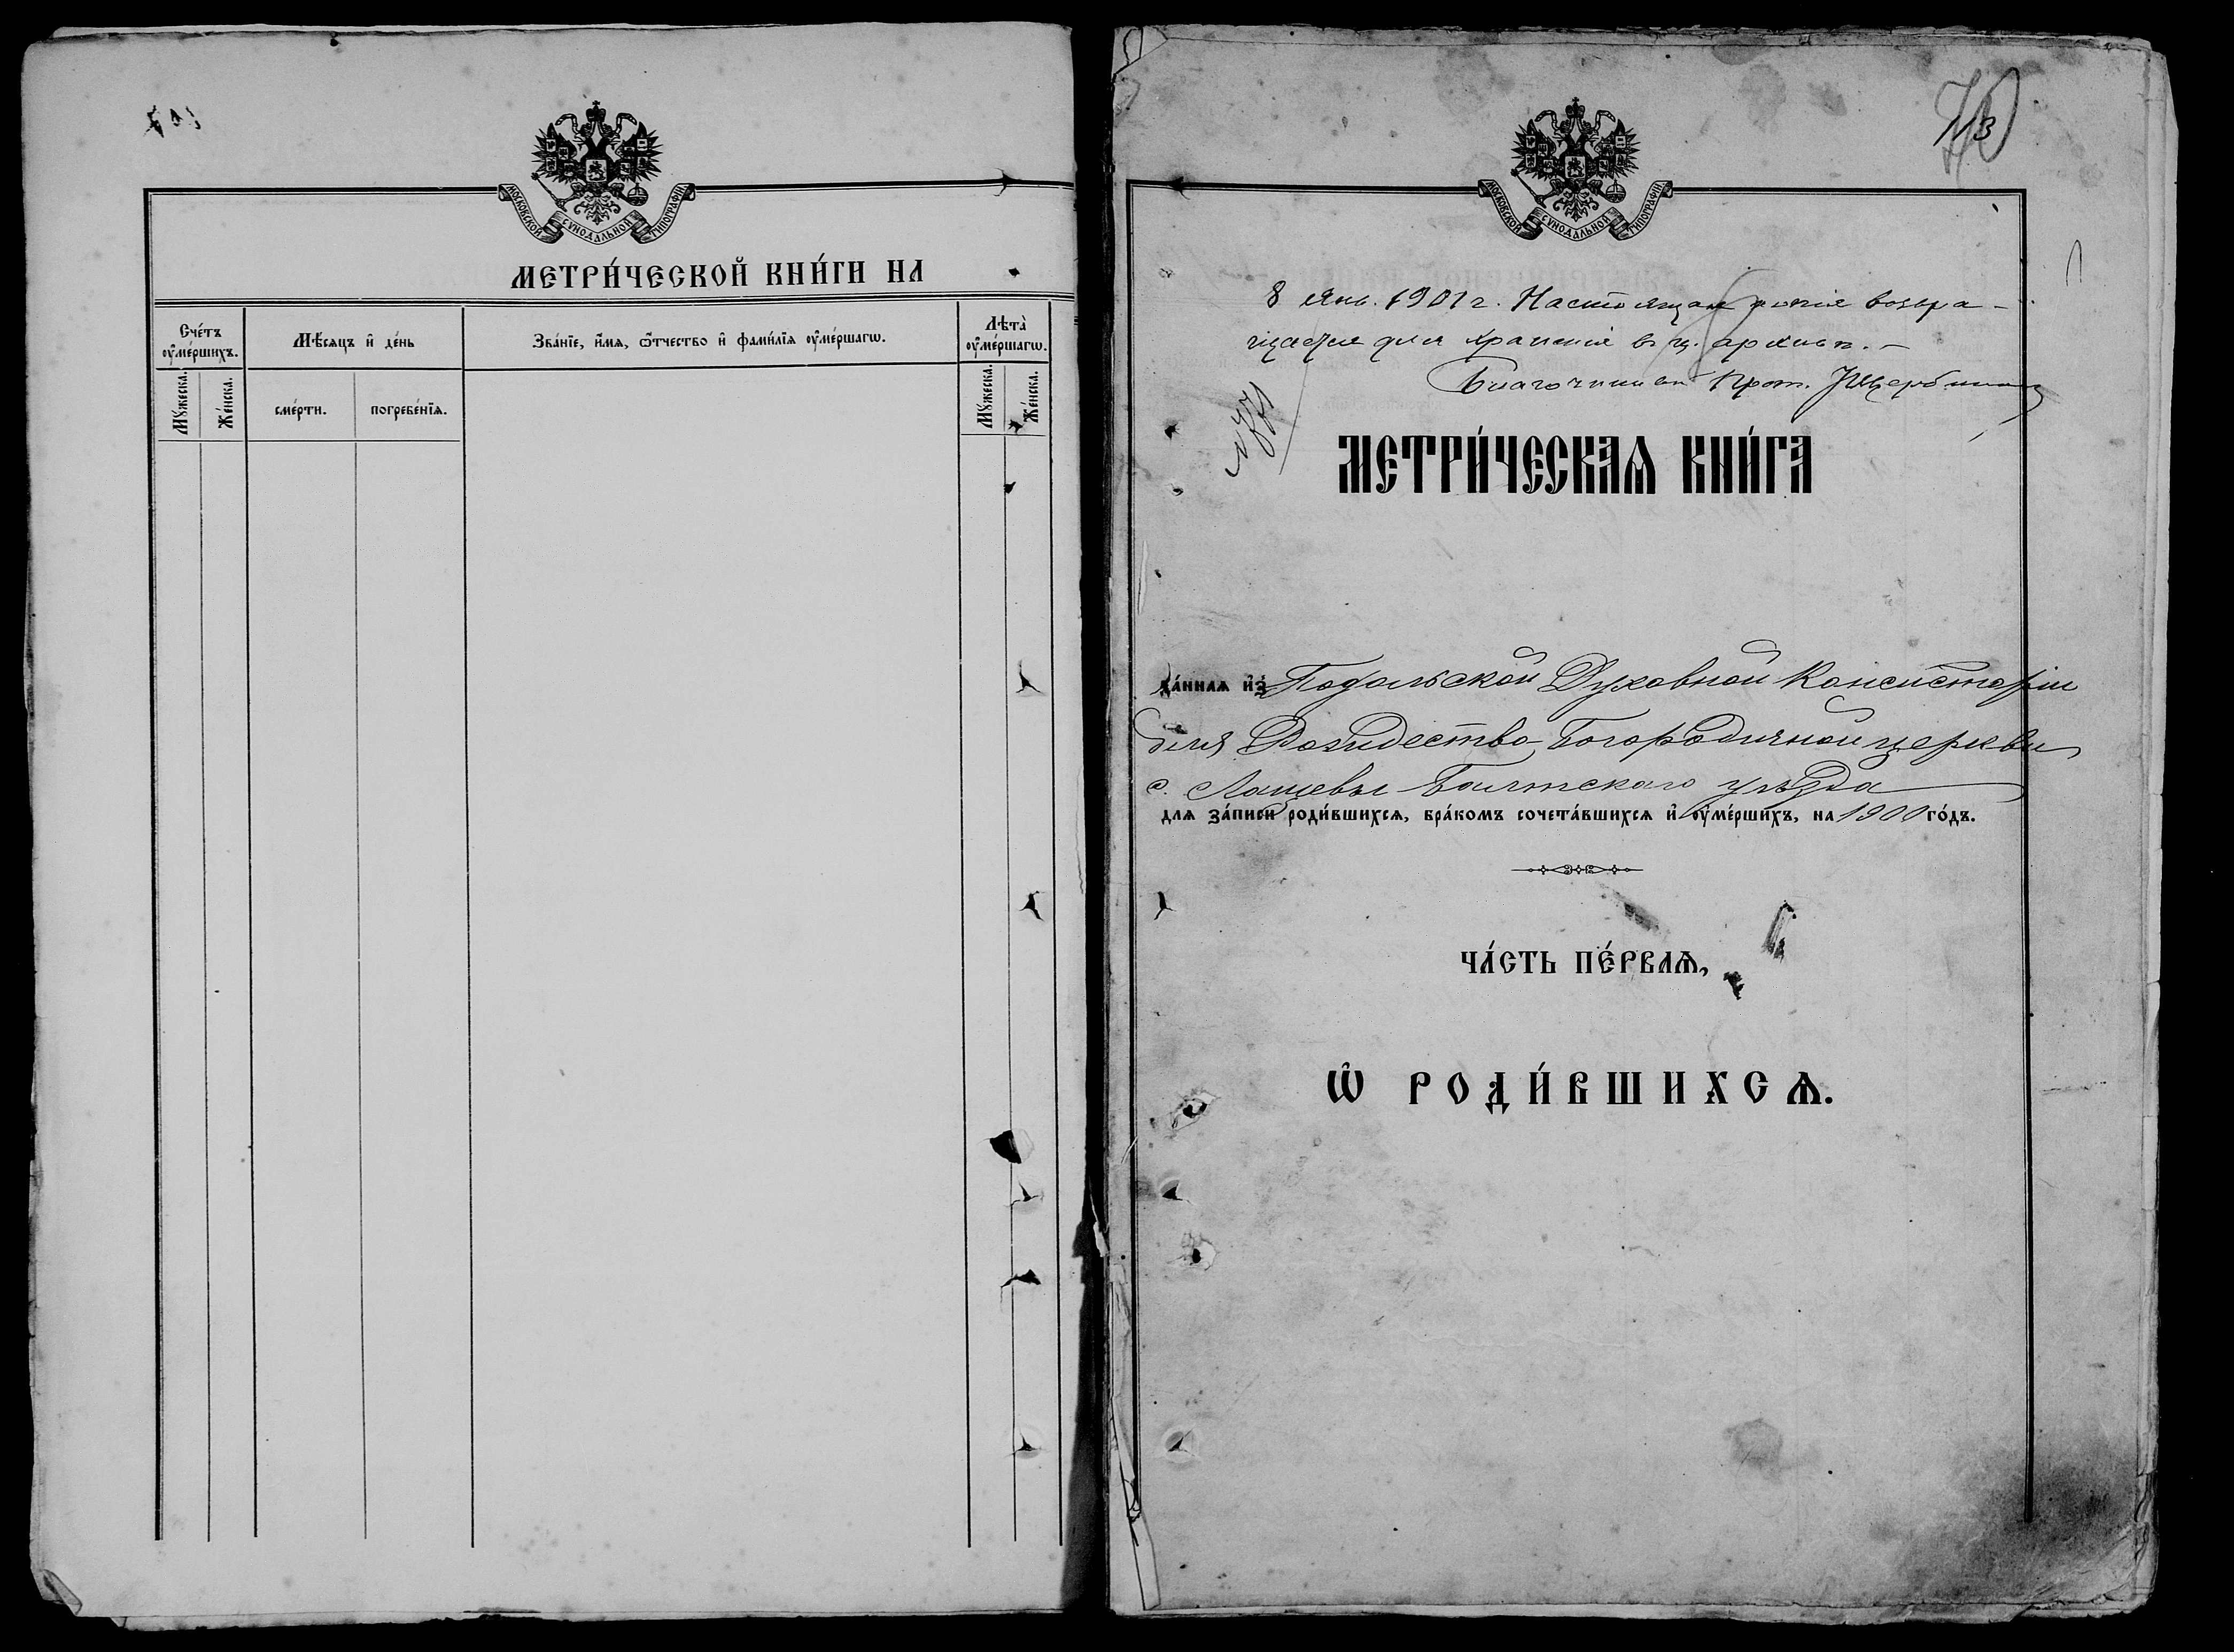 МОСКОВСКОЙ СѴНОДАЛЬНОЙ ТИПОГРАФІИ
МЕТРИ́ЧЕСКОЙ КНИ́ГИ НА
Сче́тъ ᲂу҆ме́ршихъ.
Мѣ́сяцъ и҆ де́нь
Зва́нїе, и҆́мѧ, ѻ҆́тчество и҆ фами́лїѧ ᲂу҆ме́ршагѡ.
Лѣта̀ ᲂу҆ме́ршагѡ.
Мꙋ́жеска.
Же́нска.
сме́рти.
погребе́нїѧ.
Мꙋ́жеска.
Же́нска.
МОСКОВСКОЙ СѴНОДАЛЬНОЙ ТИПОГРАФІИ
8 Янв. 1901 г. Настоящая копія возвра-
щается для храненія в ц. архивъ. —
Благочинный Прот. Щерб
МЕТРИ́ЧЕСКАѦ КНИ́ГА
да́ннаѧ и҆зъ Подольской Духовной Консисторіи
для Рождество-Богородичной церкви
с. Лащевы Балтскаго уѣзда
длѧ за́писи роди́вшихсѧ, бра́комъ сочета́вшихсѧ и҆ ᲂу҆ме́ршихъ, на 1900 го́дъ.
ЧА́СТЬ ПЕ́РВАѦ,
Ѡ҆ РОДИ́ВШИХСѦ.